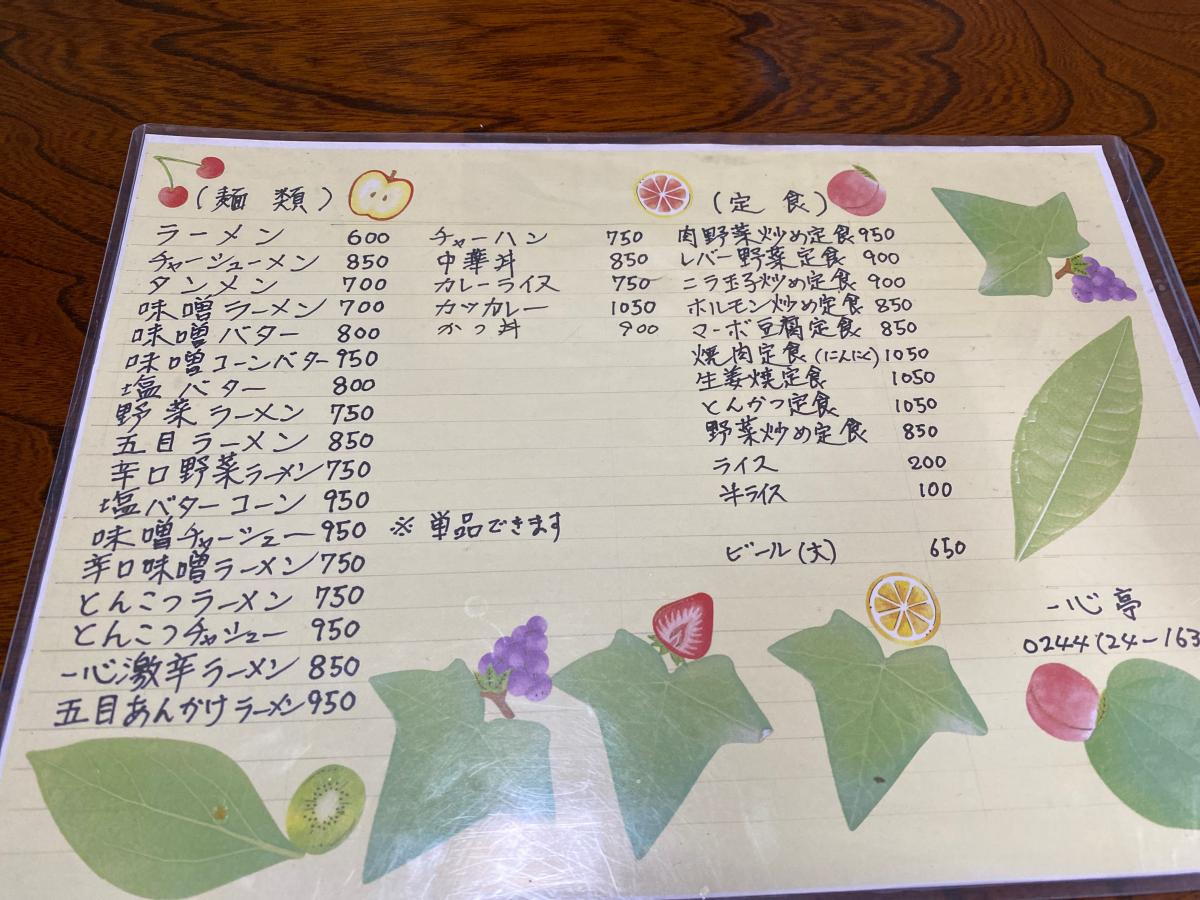 (麺類)
ラーメン 600
チャーシューメン 850
タンメン 700
味噌ラーメン 700
味噌バター 800
味噌コーンバター 950
塩バター 800
野菜ラーメン 750
五目ラーメン 850
辛口野菜ラーメン 750
塩バターコーン 950
味噌チャーシュー 950
辛口味噌ラーメン 750
とんこつラーメン 750
とんこつチャシュー 950
一心激辛ラーメン 850
五目あんかけラーメン 950
チャーハン 750
中華丼 850
カレーライス 750
カツカレー 1050
かつ丼 900
※単品できます
(定食)
肉野菜炒め定食 950
レバー野菜定食 900
ニラ玉子炒め定食 900
ホルモン炒め定食 850
マーボ豆腐定食 850
焼肉定食(にんにく) 1050
生姜焼定食 1050
とんかつ定食 1050
野菜炒め定食 850
ライス 200
半ライス 100
ビール(大) 650
一心亭
0244(24-163